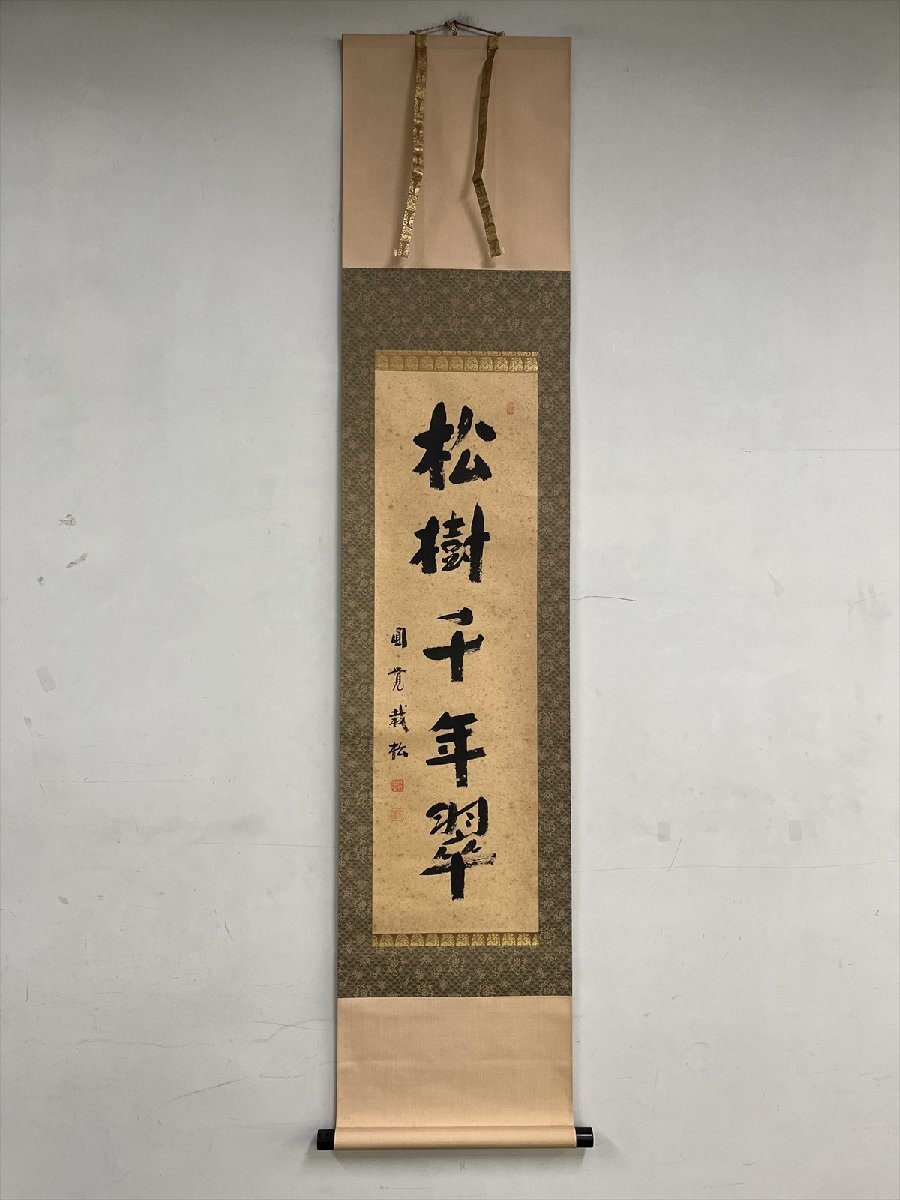 松樹千年翠
圓覚栽松